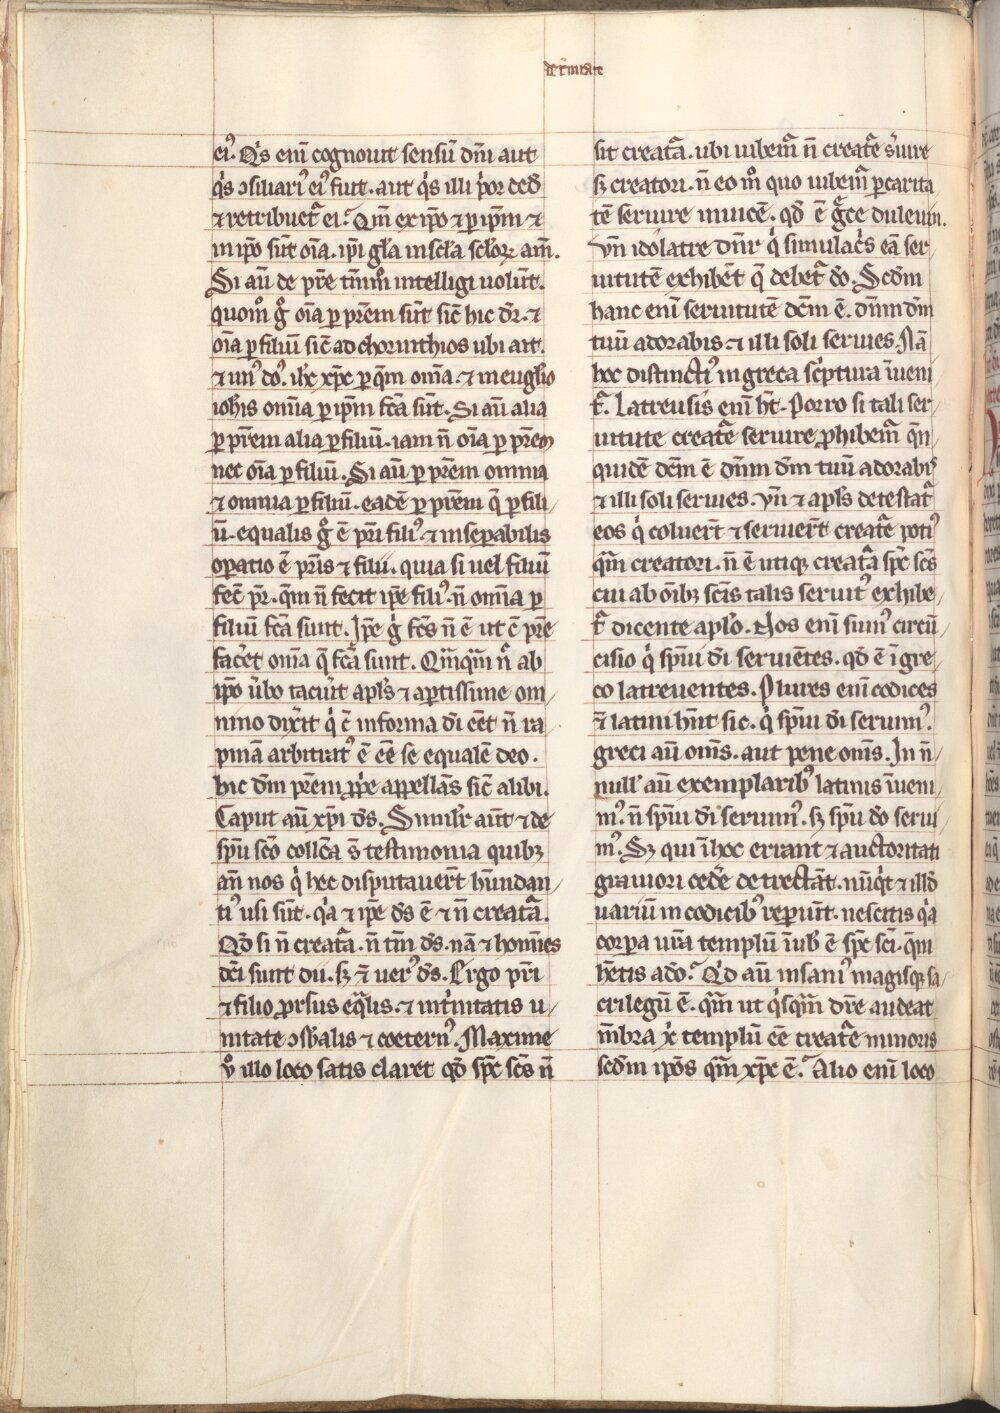 de t͛nitate
eiꝰ. Qͥs eni cognouit sensū dn̄i aut
qͥs ꝯsiliariꝰ eiꝰ fuit. aut qͥs illi pͥor ded̄
⁊ retribuet᷑ ei. Qm̄ ex ip̄o ⁊ ꝑ ip̄m ⁊
in ip̄o sūt oīa. ip̄i gl̄a in scl̄a scl̄oꝝ am̄.
Si aū de pr̄e tm̄mͦ intelligi uolūt.
quomͦ gͦ oīa ꝑ pr̄em sūt sic̄ hic dr̄. ⁊
oīa ꝑ filiū sic̄ ad chorinthios ubi ait.
⁊ unꝰ dꝰ. ih̄c xp̄c ꝑ qm̄ om̄ia. ⁊ in euḡlio
ioh̄is om̄ia ꝑ ip̄m fc̄a sūt. Si aū alia
ꝑ pr̄em alia ꝑ filiū. iam n̄ oīa ꝑ pr̄em
nec oīa ꝑ filiū. Si aū ꝑ pr̄em omnia
⁊ omnia ꝑ filiū. eadē ꝑ pr̄em q̄ ꝑ fili
ū. equalis gͦ ē pr̄i filiꝰ. ⁊ insepabilis
oꝑatio ē pr̄is ⁊ filii. quia si uel filiū
fec̄ pr̄. qm̄ n̄ fecit ip̄e filiꝰ. n̄ omnia ꝑ
filiū fc̄a sunt. Ip̄e gͦ fc̄s n̄ ē ut c̄ pr̄e
fac̄et om̄ia q̄ fc̄a sunt. Qm̄qm̄ nͨ ab
ip̄o ūbo tacuīt apl̄s ⁊ aꝑtissime om
nino dixit qͥ c̄ in forma dī eēt n̄ ra
pinā arbitratꝰ ē eē se equalē deo.
hic dm̄ pr̄em ꝓpͥe appellās sic̄ alibi.
Caput aū xp̄i ds̄. Similr̄ aūt ⁊ de
sp̄u sc̄o collc̄a s̄ testimonia quibꝫ
an̄ nos qͥ hec disputauer̄t hūndan
tiꝰ usi sūt. qͥa ⁊ ip̄e ds̄ ē ⁊ n̄ creat᷑a.
Qd̄ si n̄ creat᷑a. n̄ tm̄ ds̄. nā ⁊ homīes
dc̄i sunt dii. sꝫ ⁊̄ uerꝰ ds̄. Ergo pr̄i
⁊ filio ꝓrsus eq̄lis. ⁊ in t͛nitatis u
nitate ꝯsb̄alis ⁊ coeternꝰ. Maxime
ū illo loco satis claret qd̄ sp̄c sc̄s n̄
sit creat᷑a. ubi iubem᷑ n̄ creat᷑e s̓uire
sꝫ creatori. n̄ eo mͦ quo iubem᷑ ꝑ carita
tē seruire inuicē. qd̄ ē gͤce duleuin.
Vn̄ idolatre dn̄r qͥ simulacͥs eā ser
uitutē exhibēt q̄ debet᷑ dō. Scdm̄
hanc eni seruitutē dc̄m ē. dn̄m dm̄
tuū adorabis. ⁊ illi soli seruies. Nā
hoc distinctiꝰ in greca scͥptura īueni
t᷑. Latreusis eni ht̄. Porro si tali ser
uitute creat᷑e seruire ꝓhibem᷑ qn̄
quidē dc̄m ē dn̄m dm̄ tuū adorabis
⁊ illi soli seruies. Vn̄ ⁊ apl̄s detestat᷑
eos qͥ coluer̄t ⁊ seruier̄t creat᷑e potiꝰ
qm̄ creatori. n̄ ē utiqꝫ creat᷑a sp̄c sc̄s
cui ab oībꝫ sc̄is talis seruitꝰ exhibe
t᷑ dicente apl̄o. Nos eni sumꝰ circū
cisio qͥ sp̄ui dī seruiētes. qd̄ ē ī gre
co latreuentes. Plures eni codices
⁊̄ latini hn̄t sic. qͥ sp̄ui dī seruimꝰ.
greci aū om̄s. aut pene om̄s. In n̄
nullꝭ aū exemplaribꝰ latinis īueni
mꝰ. n̄ sp̄ui dī seruimꝰ. sꝫ sp̄u dō serui
mꝰ. Sꝫ qui ī hoc errant ⁊ auctoritati
grauiori ced̓e detrectāt. nūqͥt ⁊ illd̄
uariū in codicibꝰ reꝑiūt. nescitis qͥa
corꝑa ur̄a templū ī uob̄ ē sp̄c sc̄i. qm̄
hētis a dō. Qͥd aū insaniꝰ magisqꝫ sa
crilegū ē. qm̄ ut qͥsqm̄ dr̄e audeat
m̄bra xͥ templū eē creat᷑e minoris
scdm̄ ip̄os qm̄ xp̄c ē. Alio eni loco